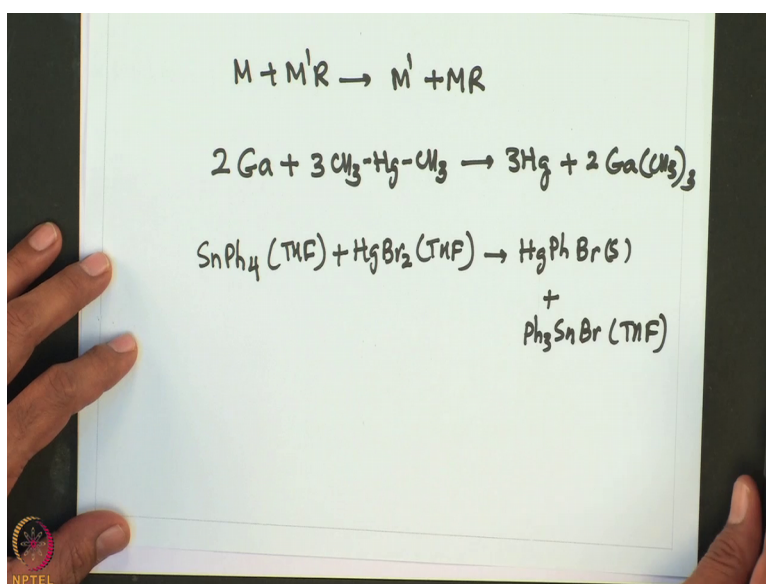 M + M'R → M' + MR
2 Ga + 3 CH₃-Hg-CH₃ → 3Hg + 2 Ga(CH₃)₃
SnPh₄ (THF) + HgBr₂ (THF) → HgPhBr(s)
+
Ph₃SnBr (THF)
NPTEL